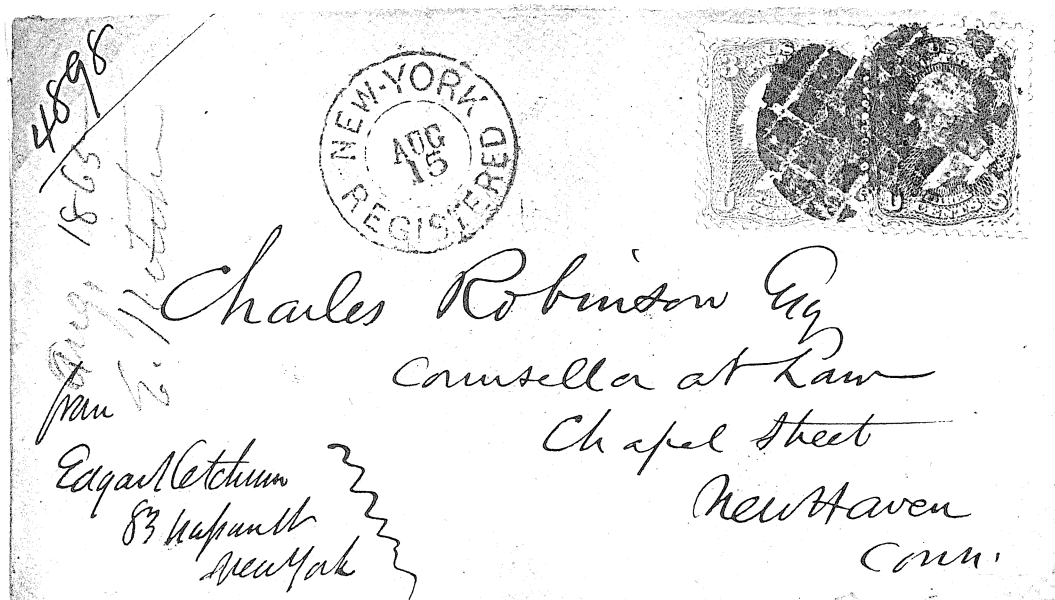 4898
Aug. 1865
NEW-YORK
AUG
15
REGISTERED
U S
3
U S
CENTS
Charles Robinson Esq
Counsellor at Law
Chapel Street
New Haven
Conn.
from
Edgar Ketchum
83
New York